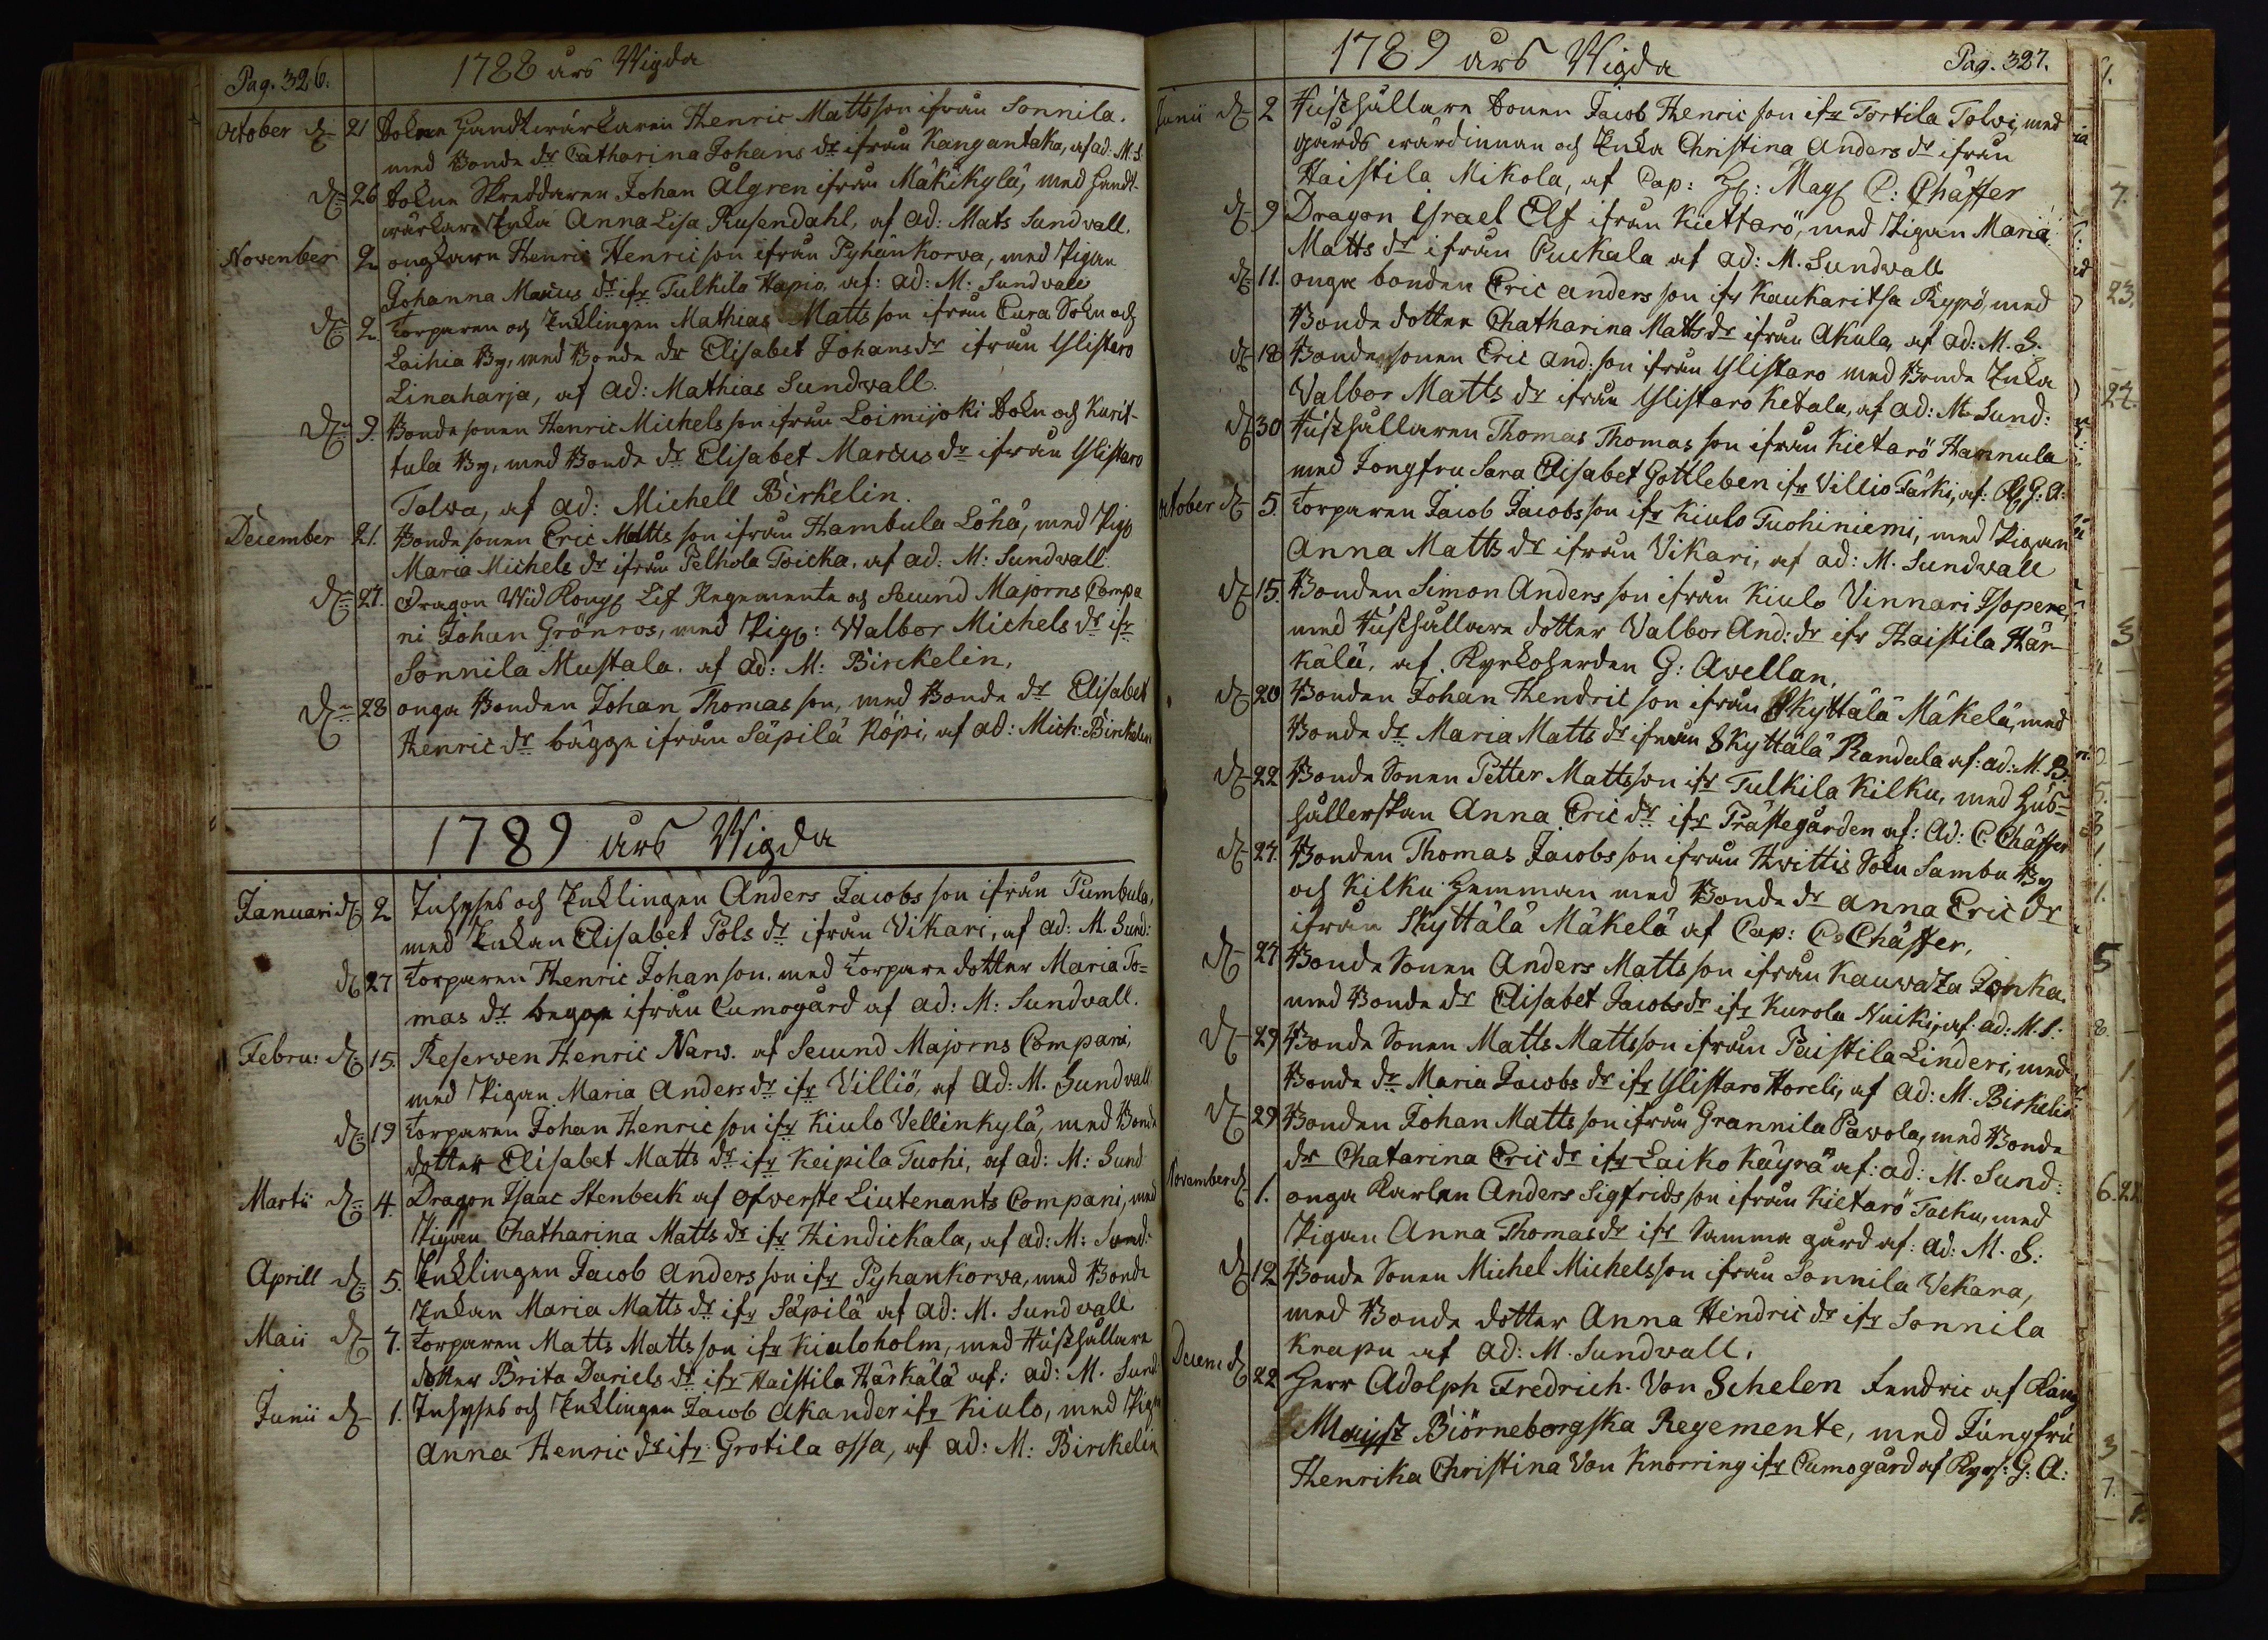 Pag. 326.
1788 års Wigda
October d. 21 Sokne Handtwärkaren Henric Mattsson ifrån Sonnila.
med Bonde dr Catharina Johans dr ifrån Kangantaka, af ad. M. S.
d. 26 Sokne Skreddaren Johan Ålgren ifrån Mäkikylä, med Handt-
wärkare Enka Anna Lisa Rusendahl, af ad: Mats Sundvall.
November 2 Henric Henricsson ifrån Pyhänkorva, med Pigan
Johanna Marcus dr ifr Tulkila Hapio, af: ad: M: Sundvall
d. 2. Torparen och Enklingen Mathias Mattsson ifrån Eura Sokn och
Laihia By, med Bonde dr Elisabet Johansdr ifrån Ylistaro
Linaharja, af ad: Mathias Sundwall.
d. 9. Bondesonen Henric Michelsson ifrån Loimijoki Sokn och Kurit-
tula By, med Bonde dr Elisabet Marcus dr ifrån Ylistaro
Tolva, af ad: Michell Birkelin.
December 21. Bonde sonen Eric Matts son ifrån Hambula Löhä, med Pig.
Maria Michels dr ifrån Pelhola Toicka, af ad. M: Sundvall.
d. 27. Dragon Wid Kongl Lif Regemente och Secund Majorns Compa
ni Johan Grönros, med Pig: Walbor Michels dr ifr
Sonnila Mustala. af ad: M: Birckelin,
d. 28 onga Bonden Johan Thomas son, med Bonde dr Elisabet
Henric dr bägge ifrån Säpilä Röpi, af ad: Mich: Birckelin
1789 års Wigda
Januari d. 2 Inhyses och Enklingen Anders Jacobs son ifrån Pumbula,
med Enkan Elisabet Pols dr ifrån Vikari, af ad: M. Sund:
d. 27 Torparen Henric Johanson. med Torpare dotter Maria To=
mas dr begge ifrån Cumogård af ad: M: Sundvall.
Febru: d. 15. Reserven Henric Narv. af Secund Majorns Compani,
med Pigan Maria Anders dr ifr Villiö, af ad: M. Sundvall
d. 19 Torparen Johan Henric son ifr Kiulo Vellinkylä, med Bonde
dotter Elisabet Matts dr ifr Keipila Tuohi, af ad: M: Sund
Martii d. 4. Dragon Isaac Stenbeck af Öfverste Liutenants Compani, med
Pigan Chatharina Matts dr ifr Hindickala, af ad: M: Sund:
Aprill d. 5. Enklingen Jacob Anders son ifr Pyhankorva, med Bonde
Enkan Maria Matts dr ifr Säpilä af ad: M. Sundvall
Maii d. 7. Torparen Matts Matts son ifr Kiuloholm, med Hushållare
dotter Brita Dariels dr ifr Haistila Härkälä af: ad: M. Sund
Junii d. 1. Inhyses och Enklingen Jacob Akander ifr Kiulo, med Pigan
Anna Henric dr ifr Grotila ossa, af ad: M: Birckelin
1789 års Wigda
Pag. 327.
Junii d. 2 Hushållare Sonen Jacob Henric son ifr Torttila Tolvi, med
gårds wärdinnan och Enka Christina Anders dr ifrån
Haistila Mikola, af Cap: Mag C: Chäffer
d. 9 Dragon Israel Elf ifrån Kiettarö, med Pigan Maria
Matts dr ifrån Puckala af ad: M. Sundvall
d. 11. onga bonden Eric anders son ifr Kaukaritsa Rypö, med
Bonde dotter Chatharina Matts dr ifrån Akula, af ad: M. S.
d. 18 Bondesonen Eric And: son ifrån Ylistaro med Bonde Enka
Valbor Matts dr ifrån Ylistaro Ketala, af ad: M. Sund:
d. 30 Hushållaren Thomas Thomas son ifrån Kietarö Hannula
med Jongfru Sara Elisabet Gottleben ifr Villio Färki, af: G: A:
October d. 5. Torparen Jacob Jacobs son ifr Kiulo Tuohiniemi, med Pigan
Anna Matts dr ifrån Vikari, af ad: M. Sundvall
d. 15. Bonden Simon Anders son ifrån Kiulo Vinnari Isopere,
med Hushållare dotter Valbor And: dr ifr Haistila Här-
kälä, af Kyrkoherden G: Avellan,
d. 20 Bonden Johan Hendric son ifrån Skyttälä Mäkelä, med
Bonde dr Maria Matts dr ifrån Skyttälä Randala af: ad: M. B.
d. 22 Bonde Sonen Petter Mattsson ifr Tulkila Kilku, med Hus=
hållerskan Anna Eric dr ifr Prästegården af: ad: C. Chäffer
d. 27. Bonden Thomas Jacobs son ifrån Hvittis Sokn Sambu By
och Kilku Hemman med Bonde dr Anna Eric dr
ifrån Skyttälä Mäkelä af Cap: C. Chäffer,
d. 27 Bonde Sonen Anders Matts son ifrån Kauvaza Lonka.
med Bonde dr Elisabet Jacobsdr ifr Kurola Nuiki, af: ad: M. S:
d. 29 Bonde Sonen Matts Mattsson ifrån Paistila Linderi, med
Bonde dr Maria Jacobs dr ifr Ylistaro Horeli, af ad: M. Birkelin
d. 29 Bonden Johan Matts son ifrån Grannila Pavola, med Bonde
dr Chatarina Eric dr ifr Laiko Käyrä af: ad: M. Sund:
November d. 1. onga Karlen Anders Sigfrids son ifrån Kietarö Tacku, med
Pigan Anna Thomasdr ifr Samma gård af: ad: M. S:
d. 12 Bonde Sonen Michel Michelsson ifrån Sonnila Vekara,
med Bonde dotter Anna Hendric dr ifr Sonnila
Knapu af ad: M. Sundvall,
Decem d. 22 Herr Adolph Fredrich. Von Schelen Fendric af Käng
Majst Biörneborgska Regemente, med Jungfru
Henrika Christina Von Knorring ifr Cumogård af Kyrs: G: A: